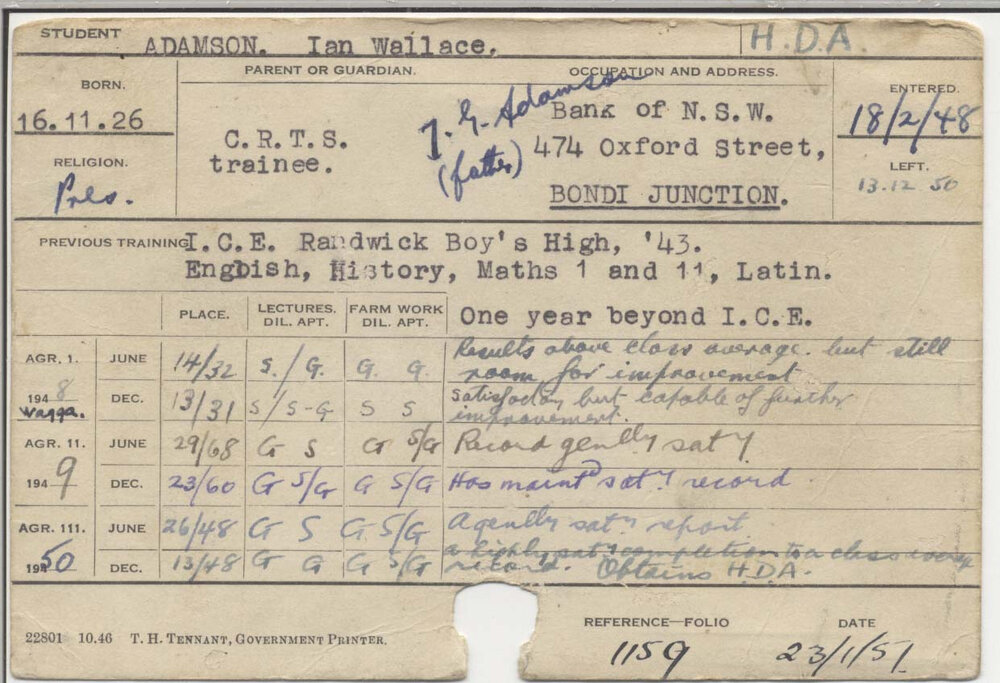 STUDENT ADAMSON. Ian Wallace. H.D.A.
BORN. PARENT OR GUARDIAN. OCCUPATION AND ADDRESS. ENTERED.
16.11.26 C.R.T.S. trainee. J. G. Adamson (father) Bank of N.S.W. 18/2/48
474 Oxford Street,
RELIGION. LEFT.
Pres. BONDI JUNCTION. 13.12.50
PREVIOUS TRAINING I.C.E. Randwick Boy's High, '43.
English, History, Maths 1 and 11, Latin.
PLACE. LECTURES. DIL. APT. FARM WORK DIL. APT. One year beyond I.C.E.
AGR. 1. JUNE 14/32 S./G. G. G. Results above class average. but still
room for improvement
1948 Wagga. DEC. 13/31 S/S-G S S Satisfactory but capable of further
improvement.
AGR. 11. JUNE 29/68 G S G S/G Record genlly saty
1949 DEC. 23/60 G S/G G S/G Has maintd saty record
AGR. 111. JUNE 26/48 G S G S/G A genlly saty report
1950 DEC. 13/48 G G G S/G a highly saty completion to a class
record. Obtains H.D.A.
REFERENCE—FOLIO DATE
22801 10.46 T. H. TENNANT, GOVERNMENT PRINTER.
1159 23/1/51.